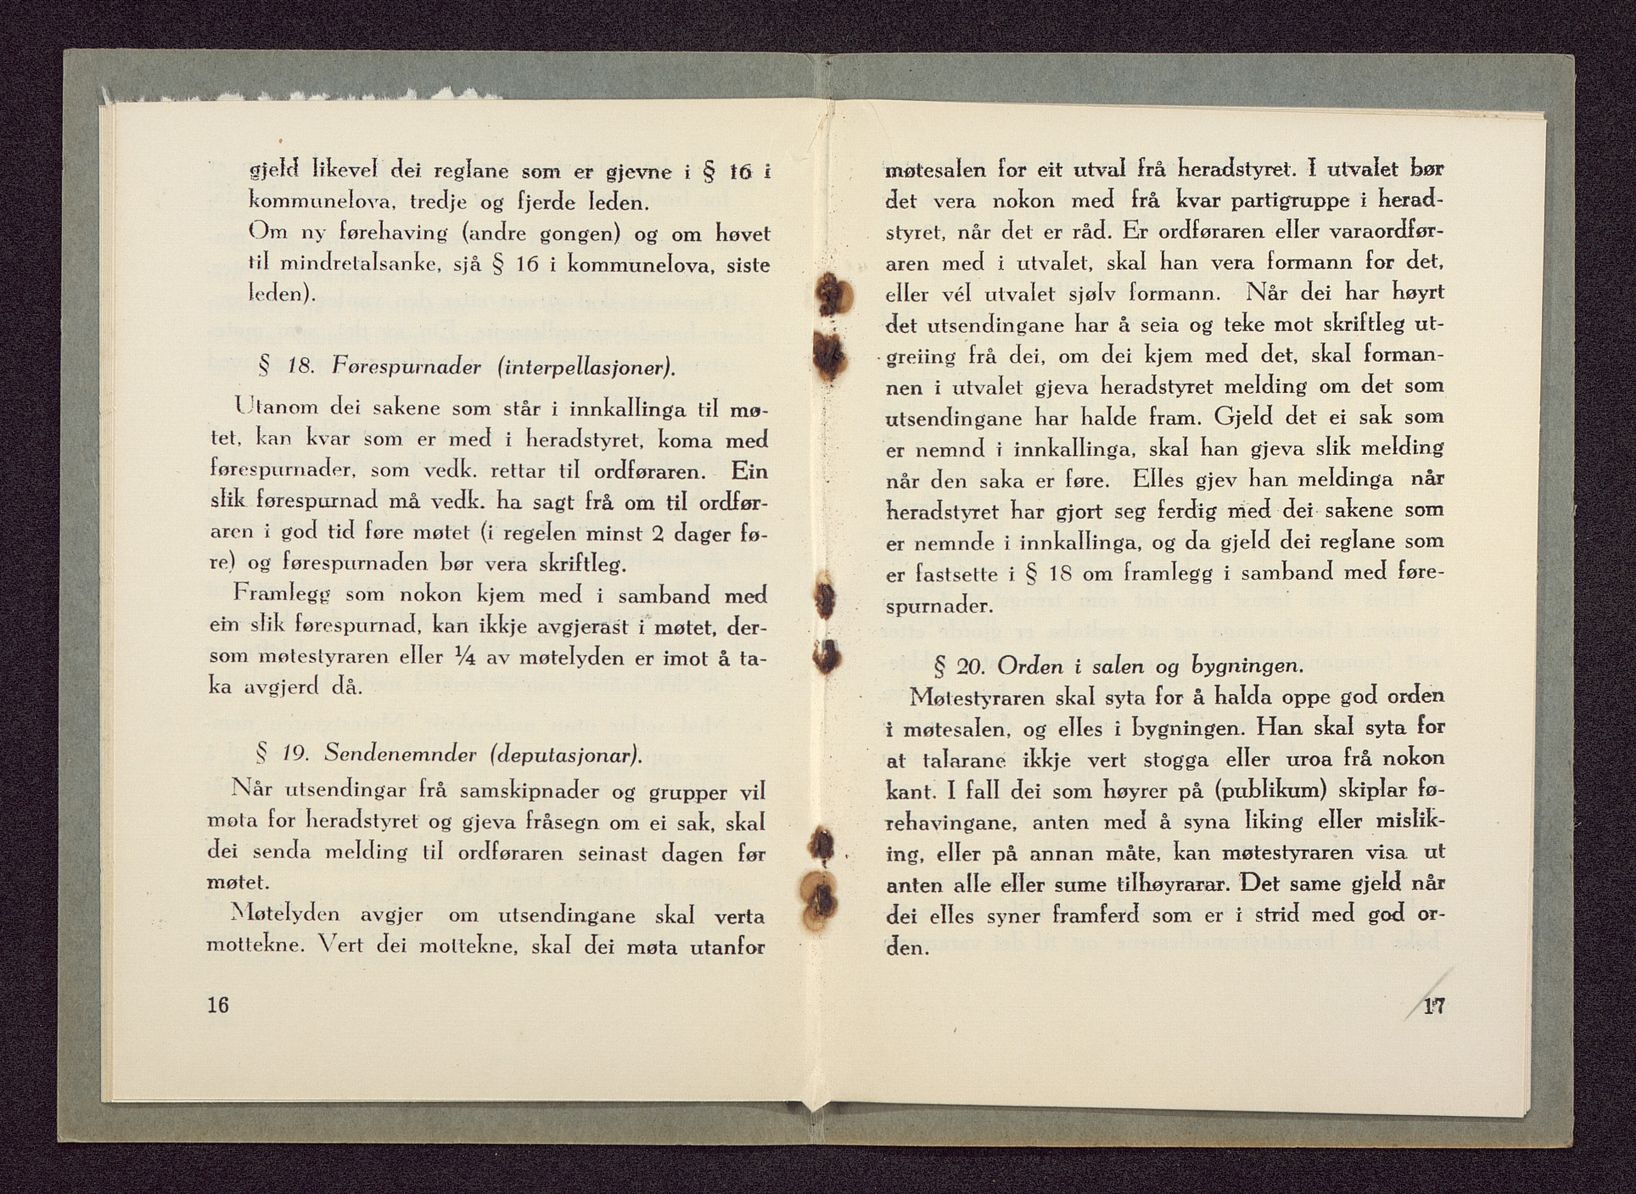 gjeld likevel dei reglane som er gjevne i § 16 i
kommunelova, tredje og fjerde leden.
Om ny førehaving (andre gongen) og om høvet
til mindretalsanke, sjå § 16 i kommunelova, siste
leden).
§ 18. Førespurnader (interpellasjoner).
Utanom dei sakene som står i innkallinga til mø-
tet, kan kvar som er med i heradstyret, koma med
førespurnader, som vedk. rettar til ordføraren. Ein
slik førespurnad må vedk. ha sagt frå om til ordfør-
aren i god tid føre møtet (i regelen minst 2 dager fø-
re) og førespurnaden bør vera skriftleg.
Framlegg som nokon kjem med i samband med
ein slik førespurnad, kan ikkje avgjerast i møtet, der-
som møtestyraren eller ¼ av møtelyden er imot å ta-
ka avgjerd då.
§ 19. Sendenemnder (deputasjonar).
Når utsendingar frå samskipnader og grupper vil
møta for heradstyret og gjeva fråsegn om ei sak, skal
dei senda melding til ordføraren seinast dagen før
møtet.
Møtelyden avgjer om utsendingane skal verta
mottekne. Vert dei mottekne, skal dei møta utanfor
16
møtesalen for eit utval frå heradstyret. I utvalet bør
det vera nokon med frå kvar partigruppe i herad-
styret, når det er råd. Er ordføraren eller varaordfør-
aren med i utvalet, skal han vera formann for det,
eller vél utvalet sjølv formann. Når dei har høyrt
det utsendingane har å seia og teke mot skriftleg ut-
greiing frå dei, om dei kjem med det, skal forman-
nen i utvalet gjeva heradstyret melding om det som
utsendingane har halde fram. Gjeld det ei sak som
er nemnd i innkallinga, skal han gjeva slik melding
når den saka er føre. Elles gjev han meldinga når
heradstyret har gjort seg ferdig med dei sakene som
er nemnde i innkallinga, og da gjeld dei reglane som
er fastsette i § 18 om framlegg i samband med føre-
spurnader.
§ 20. Orden i salen og bygningen.
Møtestyraren skal syta for å halda oppe god orden
i møtesalen, og elles i bygningen. Han skal syta for
at talarane ikkje vert stogga eller uroa frå nokon
kant. I fall dei som høyrer på (publikum) skiplar fø-
rehavingane, anten med å syna liking eller mislik-
ing, eller på annan måte, kan møtestyraren visa ut
anten alle eller sume tilhøyrarar. Det same gjeld når
dei elles syner framferd som er i strid med god or-
den.
17